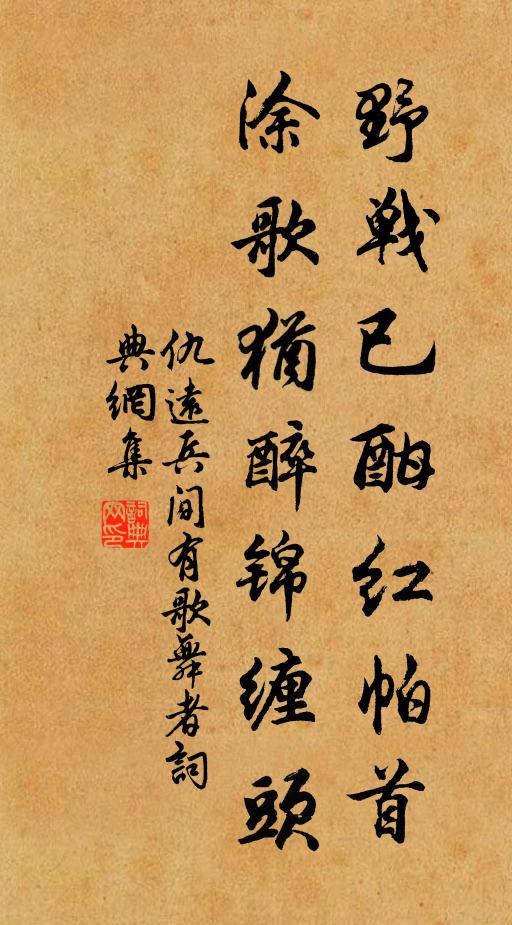 野戰已酣红帕首
涂歌猶醉锦缠頭
仇遠兵间有歌舞者詞
典網集
詞典
网印